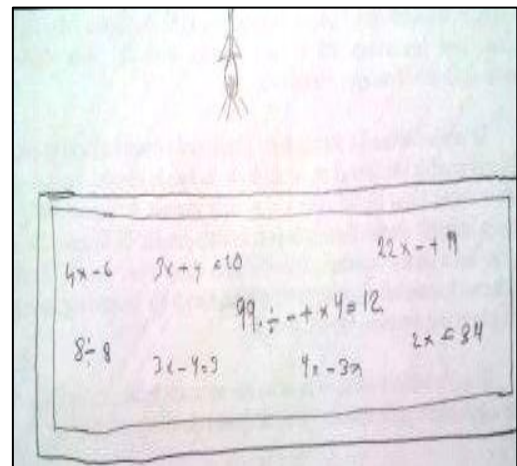 4x-6 3x+y=20 22x-+19
99.÷-+x4=12
8÷8 3x-4=3 4x-3x 2x=34